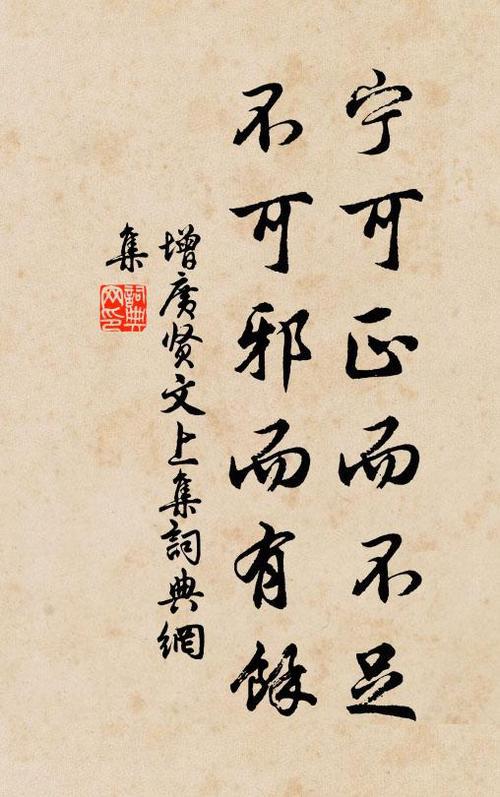 宁可正而不足
不可邪而有餘
增廣贤文上集詞典網
集
詞典
网印